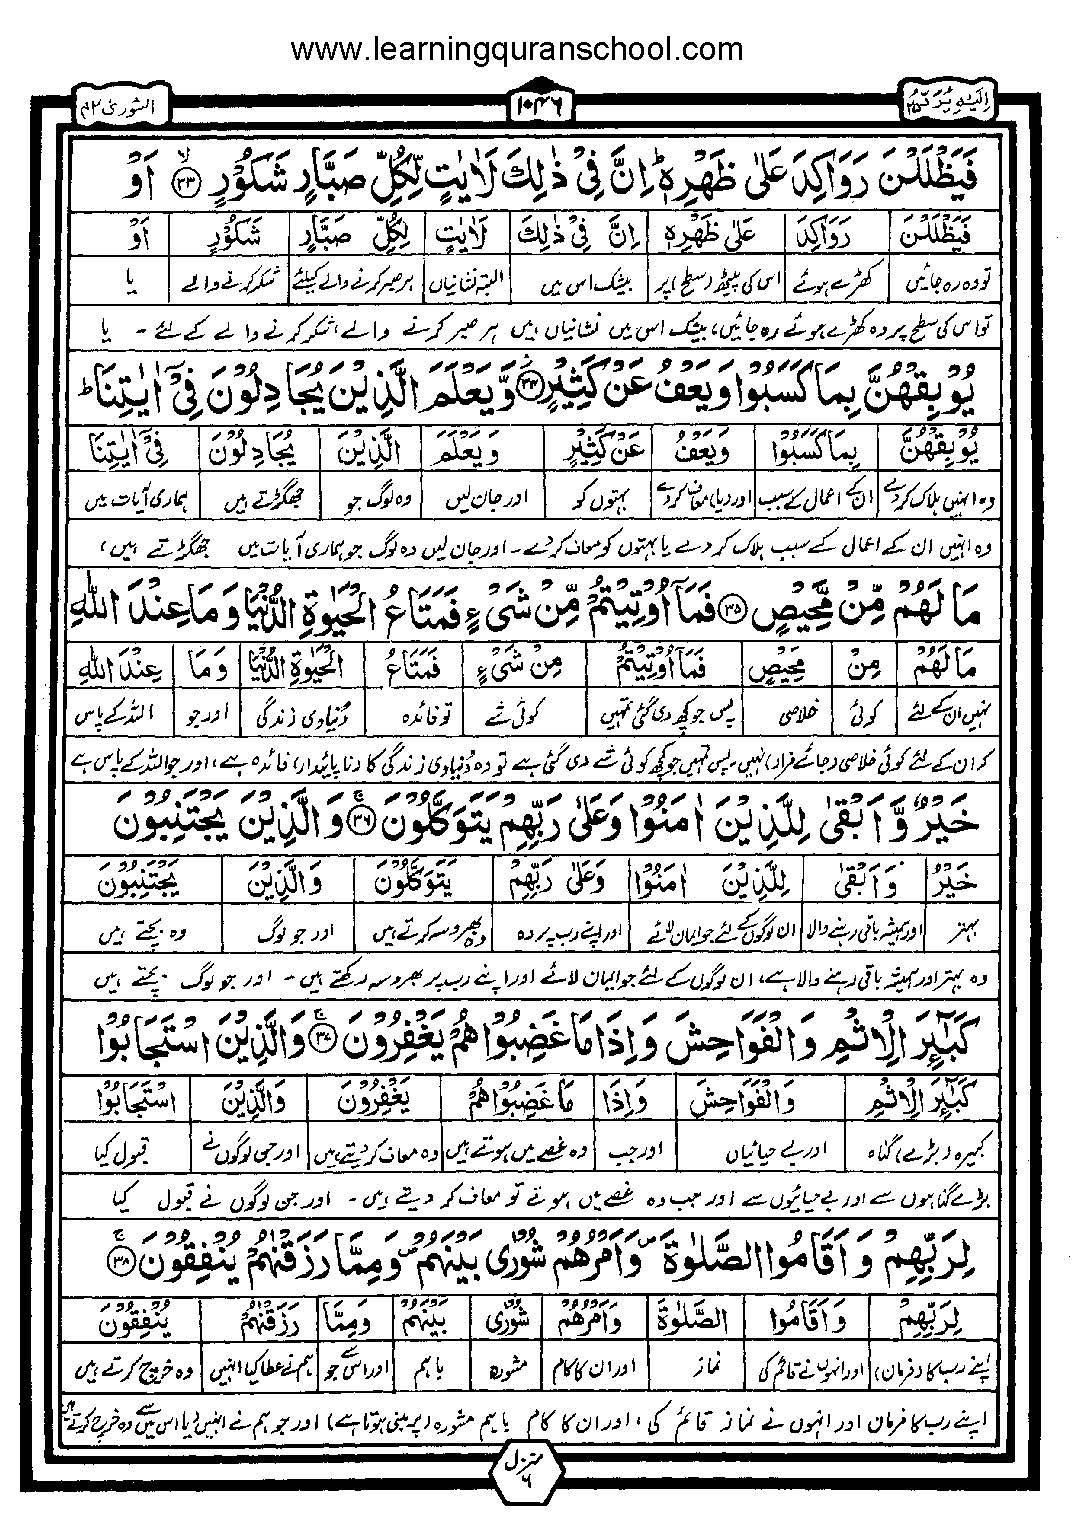 www.learningquranschool.com
الشورىٰ ۴۲ ۱۰۴۶ اِلَیْهِ یُرَدُّ ۲۵
فَیَظْلَلْنَ رَوَاكِدَ عَلٰى ظَهْرِهٖ ؕ اِنَّ فِیْ ذٰلِكَ لَاٰیٰتٍ لِّكُلِّ صَبَّارٍ شَكُوْرٍ ﴿۳۳﴾ اَوْ
فَیَظْلَلْنَ رَوَاكِدَ عَلٰى ظَهْرِهٖ اِنَّ فِیْ ذٰلِكَ لَاٰیٰتٍ لِكُلِّ صَبَّارٍ شَكُوْرٍ اَوْ
تو وہ رہ جائیں کھڑے ہوئے اس کی پیٹھ (سطح) پر بیشک اس میں البتہ نشانیاں ہر صبر کرنے والے کیلئے شکر کرنے والے یا
تو اس کی سطح پر وہ کھڑے ہوئے رہ جائیں، بیشک اس میں نشانیاں ہیں ہر صبر کرنے والے، شکر کرنے والے کے لئے ۔ یا
یُوْبِقْهُنَّ بِمَا كَسَبُوْا وَیَعْفُ عَنْ كَثِیْرٍ ﴿۳۴﴾ وَّیَعْلَمَ الَّذِیْنَ یُجَادِلُوْنَ فِیْۤ اٰیٰتِنَا ؕ
یُوْبِقْهُنَّ بِمَا كَسَبُوْا وَیَعْفُ عَنْ كَثِیْرٍ وَیَعْلَمَ الَّذِیْنَ یُجَادِلُوْنَ فِیْۤ اٰیٰتِنَا
وہ انہیں ہلاک کردے ان کے اعمال کے سبب اور (یا) معاف کردے بہتوں کو اور جان لیں وہ لوگ جو جھگڑتے ہیں ہماری آیات میں
وہ انہیں ان کے اعمال کے سبب ہلاک کر دے یا بہتوں کو معاف کر دے ۔ اور جان لیں وہ لوگ جو ہماری آیات میں جھگڑتے ہیں،
مَا لَهُمْ مِّنْ مَّحِیْصٍ ﴿۳۵﴾ فَمَاۤ اُوْتِیْتُمْ مِّنْ شَیْءٍ فَمَتَاعُ الْحَیٰوةِ الدُّنْیَا وَ مَا عِنْدَ اللّٰهِ
مَا لَهُمْ مِنْ مَحِیْصٍ فَمَاۤ اُوْتِیْتُمْ مِنْ شَیْءٍ فَمَتَاعُ الْحَیٰوةِ الدُّنْیَا وَ مَا عِنْدَ اللّٰهِ
نہیں ان کے لئے کوئی خلاصی پس جو کچھ دی گئی تمہیں کوئی شے تو فائدہ دُنیاوی زندگی اور جو اللہ کے پاس
کہ ان کے لئے کوئی خلاصی (جائے فرار) نہیں۔ پس تمہیں جو کچھ کوئی شے دی گئی ہے تو وہ دُنیاوی زندگی کا (ناپائیدار) فائدہ ہے، اور جو اللہ کے پاس ہے
خَیْرٌ وَّ اَبْقٰى لِلَّذِیْنَ اٰمَنُوْا وَعَلٰى رَبِّهِمْ یَتَوَكَّلُوْنَ ﴿۳۶﴾ وَالَّذِیْنَ یَجْتَنِبُوْنَ
خَیْرٌ وَ اَبْقٰى لِلَّذِیْنَ اٰمَنُوْا وَعَلٰى رَبِّهِمْ یَتَوَكَّلُوْنَ وَالَّذِیْنَ یَجْتَنِبُوْنَ
بہتر اور ہمیشہ باقی رہنے والا ان لوگوں کے لئے جو ایمان لائے اور اپنے رب پر وہ وہ بھروسہ کرتے ہیں اور جو لوگ وہ بچتے ہیں
وہ بہتر اور ہمیشہ باقی رہنے والا ہے، ان لوگوں کے لئے جو ایمان لائے اور اپنے رب پر بھروسہ رکھتے ہیں ۔ اور جو لوگ بچتے ہیں
كَبٰٓىِٕرَ الْاِثْمِ وَ الْفَوَاحِشَ وَ اِذَا مَا غَضِبُوْا هُمْ یَغْفِرُوْنَ ﴿۳۷﴾ وَالَّذِیْنَ اسْتَجَابُوْا
كَبٰٓىِٕرَ الْاِثْمِ وَ الْفَوَاحِشَ وَ اِذَا مَا غَضِبُوْا هُمْ یَغْفِرُوْنَ وَالَّذِیْنَ اسْتَجَابُوْا
کبیرہ (بڑے) گناہ اور بے حیائیاں اور جب وہ غصے میں ہوتے ہیں وہ معاف کردیتے ہیں اور جن لوگوں نے قبول کیا
بڑے گناہوں سے اور بے حیائیوں سے اور جب وہ غصے میں ہوتے تو معاف کر دیتے ہیں ۔ اور جن لوگوں نے قبول کیا
لِرَبِّهِمْ وَ اَقَامُوا الصَّلٰوةَ ۪ وَ اَمْرُهُمْ شُوْرٰى بَیْنَهُمْ ۪ وَمِمَّا رَزَقْنٰهُمْ یُنْفِقُوْنَ ﴿۳۸﴾
لِرَبِّهِمْ وَ اَقَامُوا الصَّلٰوةَ وَ اَمْرُهُمْ شُوْرٰى بَیْنَهُمْ وَمِمَّا رَزَقْنٰهُمْ یُنْفِقُوْنَ
اپنے رب کا (فرمان) اور انہوں نے قائم کی نماز اور ان کا کام مشورہ باہم اور اس سے جو ہم نے عطا کیا انہیں وہ خرچ کرتے ہیں
اپنے رب کا فرمان اور انہوں نے نماز قائم کی، اور ان کا کام باہم مشورہ (پر مبنی ہوتا ہے) اور جو ہم نے انہیں دیا اس میں سے وہ خرچ کرتے ہیں
منزل ۶